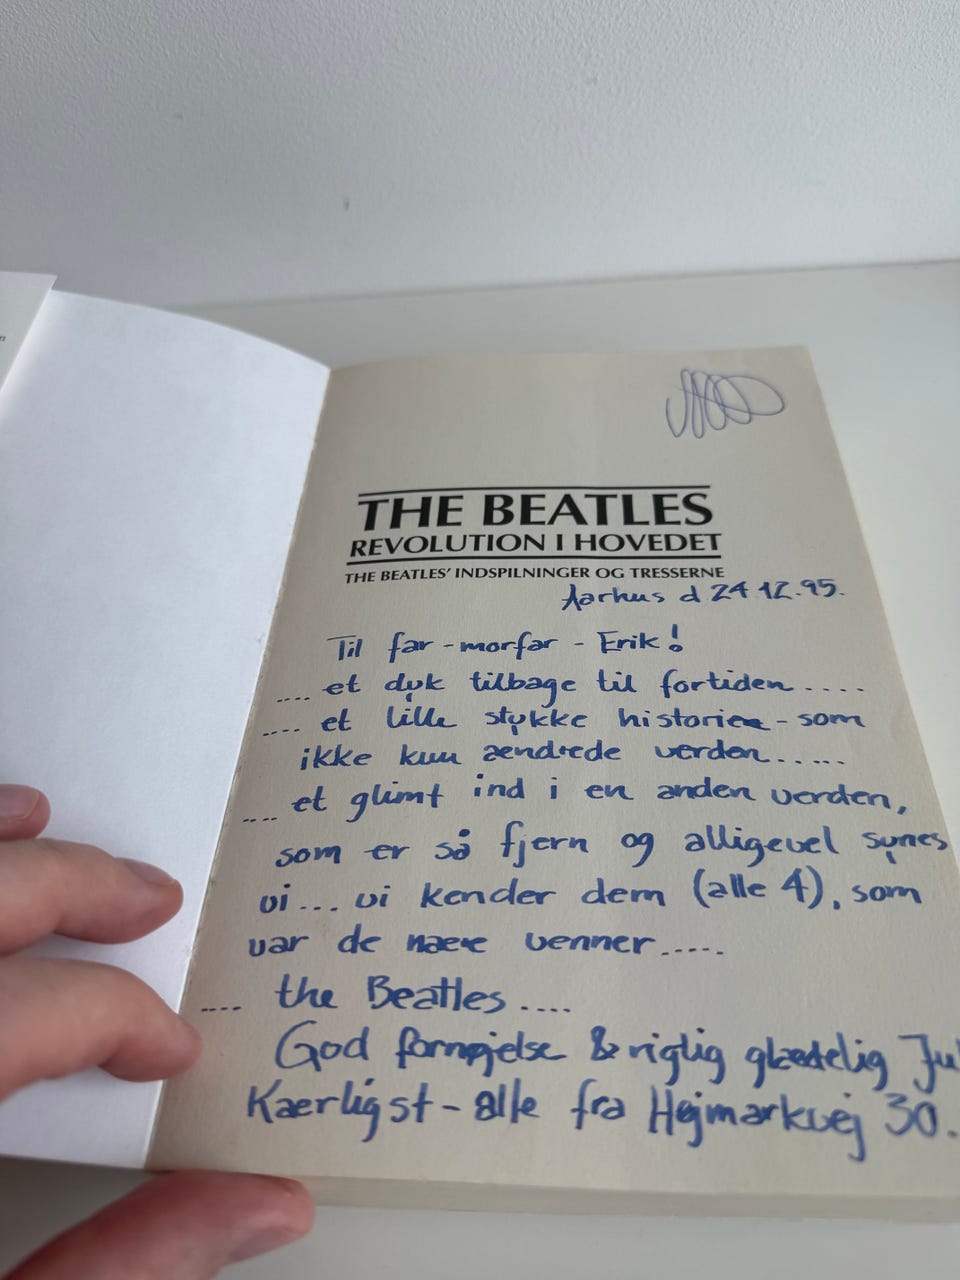 THE BEATLES
REVOLUTION I HOVEDET
THE BEATLES' INDSPILNINGER OG TRESSERNE
Aarhus d 24.12.95.
Til far-morfar - Erik!
.... et dyk tilbage til fortiden.....
.... et lille stykke historie - som
ikke kun ændrede verden......
.... et glimt ind i en anden verden,
som er så fjern og alligevel synes
vi... vi kender dem (alle 4), som
var de nære venner.....
.... the Beatles....
God fornøjelse & rigtig glædelig Jul
Kærligst - alle fra Højmarkvej 30.